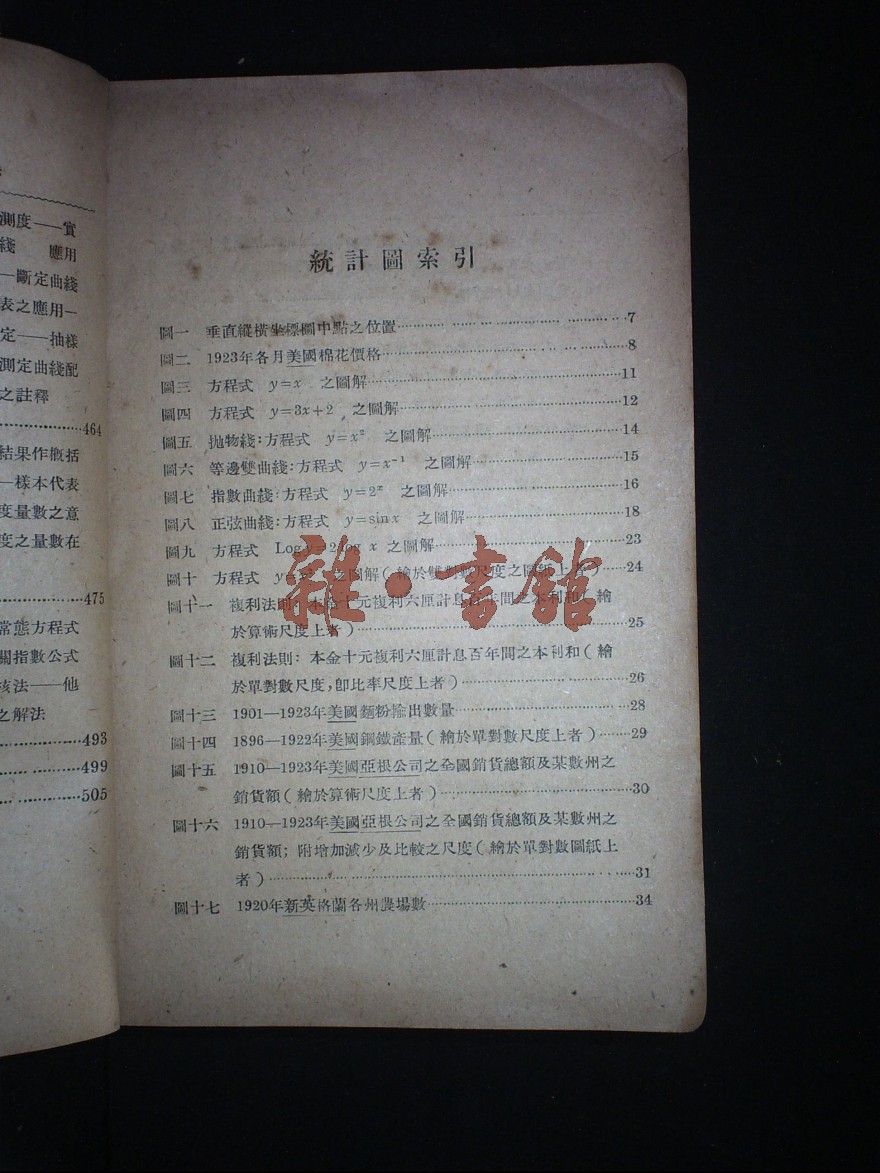 測度——實
綫　應用
—斷定曲綫
表之應用—
定——抽樣
測定曲綫配
之註釋
464
結果作概括
—樣本代表
度量數之意
度之量數在
475
常態方程式
關指數公式
核法——他
之解法
493
499
505
統計圖索引
圖一　垂直縱橫坐標圖中點之位置……7
圖二　1923年各月美國棉花價格……8
圖三　方程式　y=x　之圖解……11
圖四　方程式　y=3x+2　之圖解……12
圖五　拋物綫：方程式　y=x²　之圖解……14
圖六　等邊雙曲綫：方程式　y=x⁻¹　之圖解……15
圖七　指數曲綫：方程式　y=2ˣ　之圖解……16
圖八　正弦曲綫：方程式　y=sinx　之圖解……18
圖九　方程式　Log y=2 log x 之圖解……23
圖十　方程式　y=x²　之圖解（繪於雙對數尺度之圖紙上者）……24
圖十一　複利法則：本金十元複利六厘計息百年間之本利和（繪
於算術尺度上者）……25
圖十二　複利法則：本金十元複利六厘計息百年間之本利和（繪
於單對數尺度，卽比率尺度上者）……26
圖十三　1901—1923年美國麵粉輸出數量……28
圖十四　1896—1922年美國鋼鐵產量（繪於單對數尺度上者）……29
圖十五　1910—1923年美國亞根公司之全國銷貨總額及某數州之
銷貨額（繪於算術尺度上者）……30
圖十六　1910—1923年美國亞根公司之全國銷貨總額及某數州之
銷貨額；附增加減少及比較之尺度（繪於單對數圖紙上
者）……31
圖十七　1920年新英格蘭各州農場數……34
雜·書館